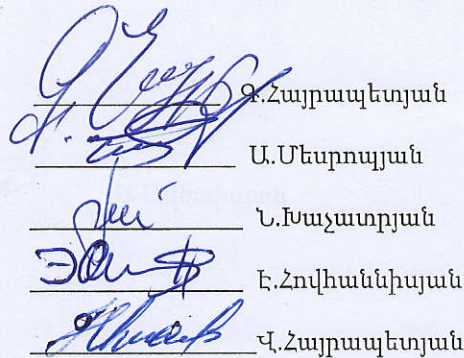 Գ.Հայրապետյան
Ա.Մեսրոպյան
Ն.Խաչատրյան
Է.Հովհաննիսյան
Վ.Հայրապետյան